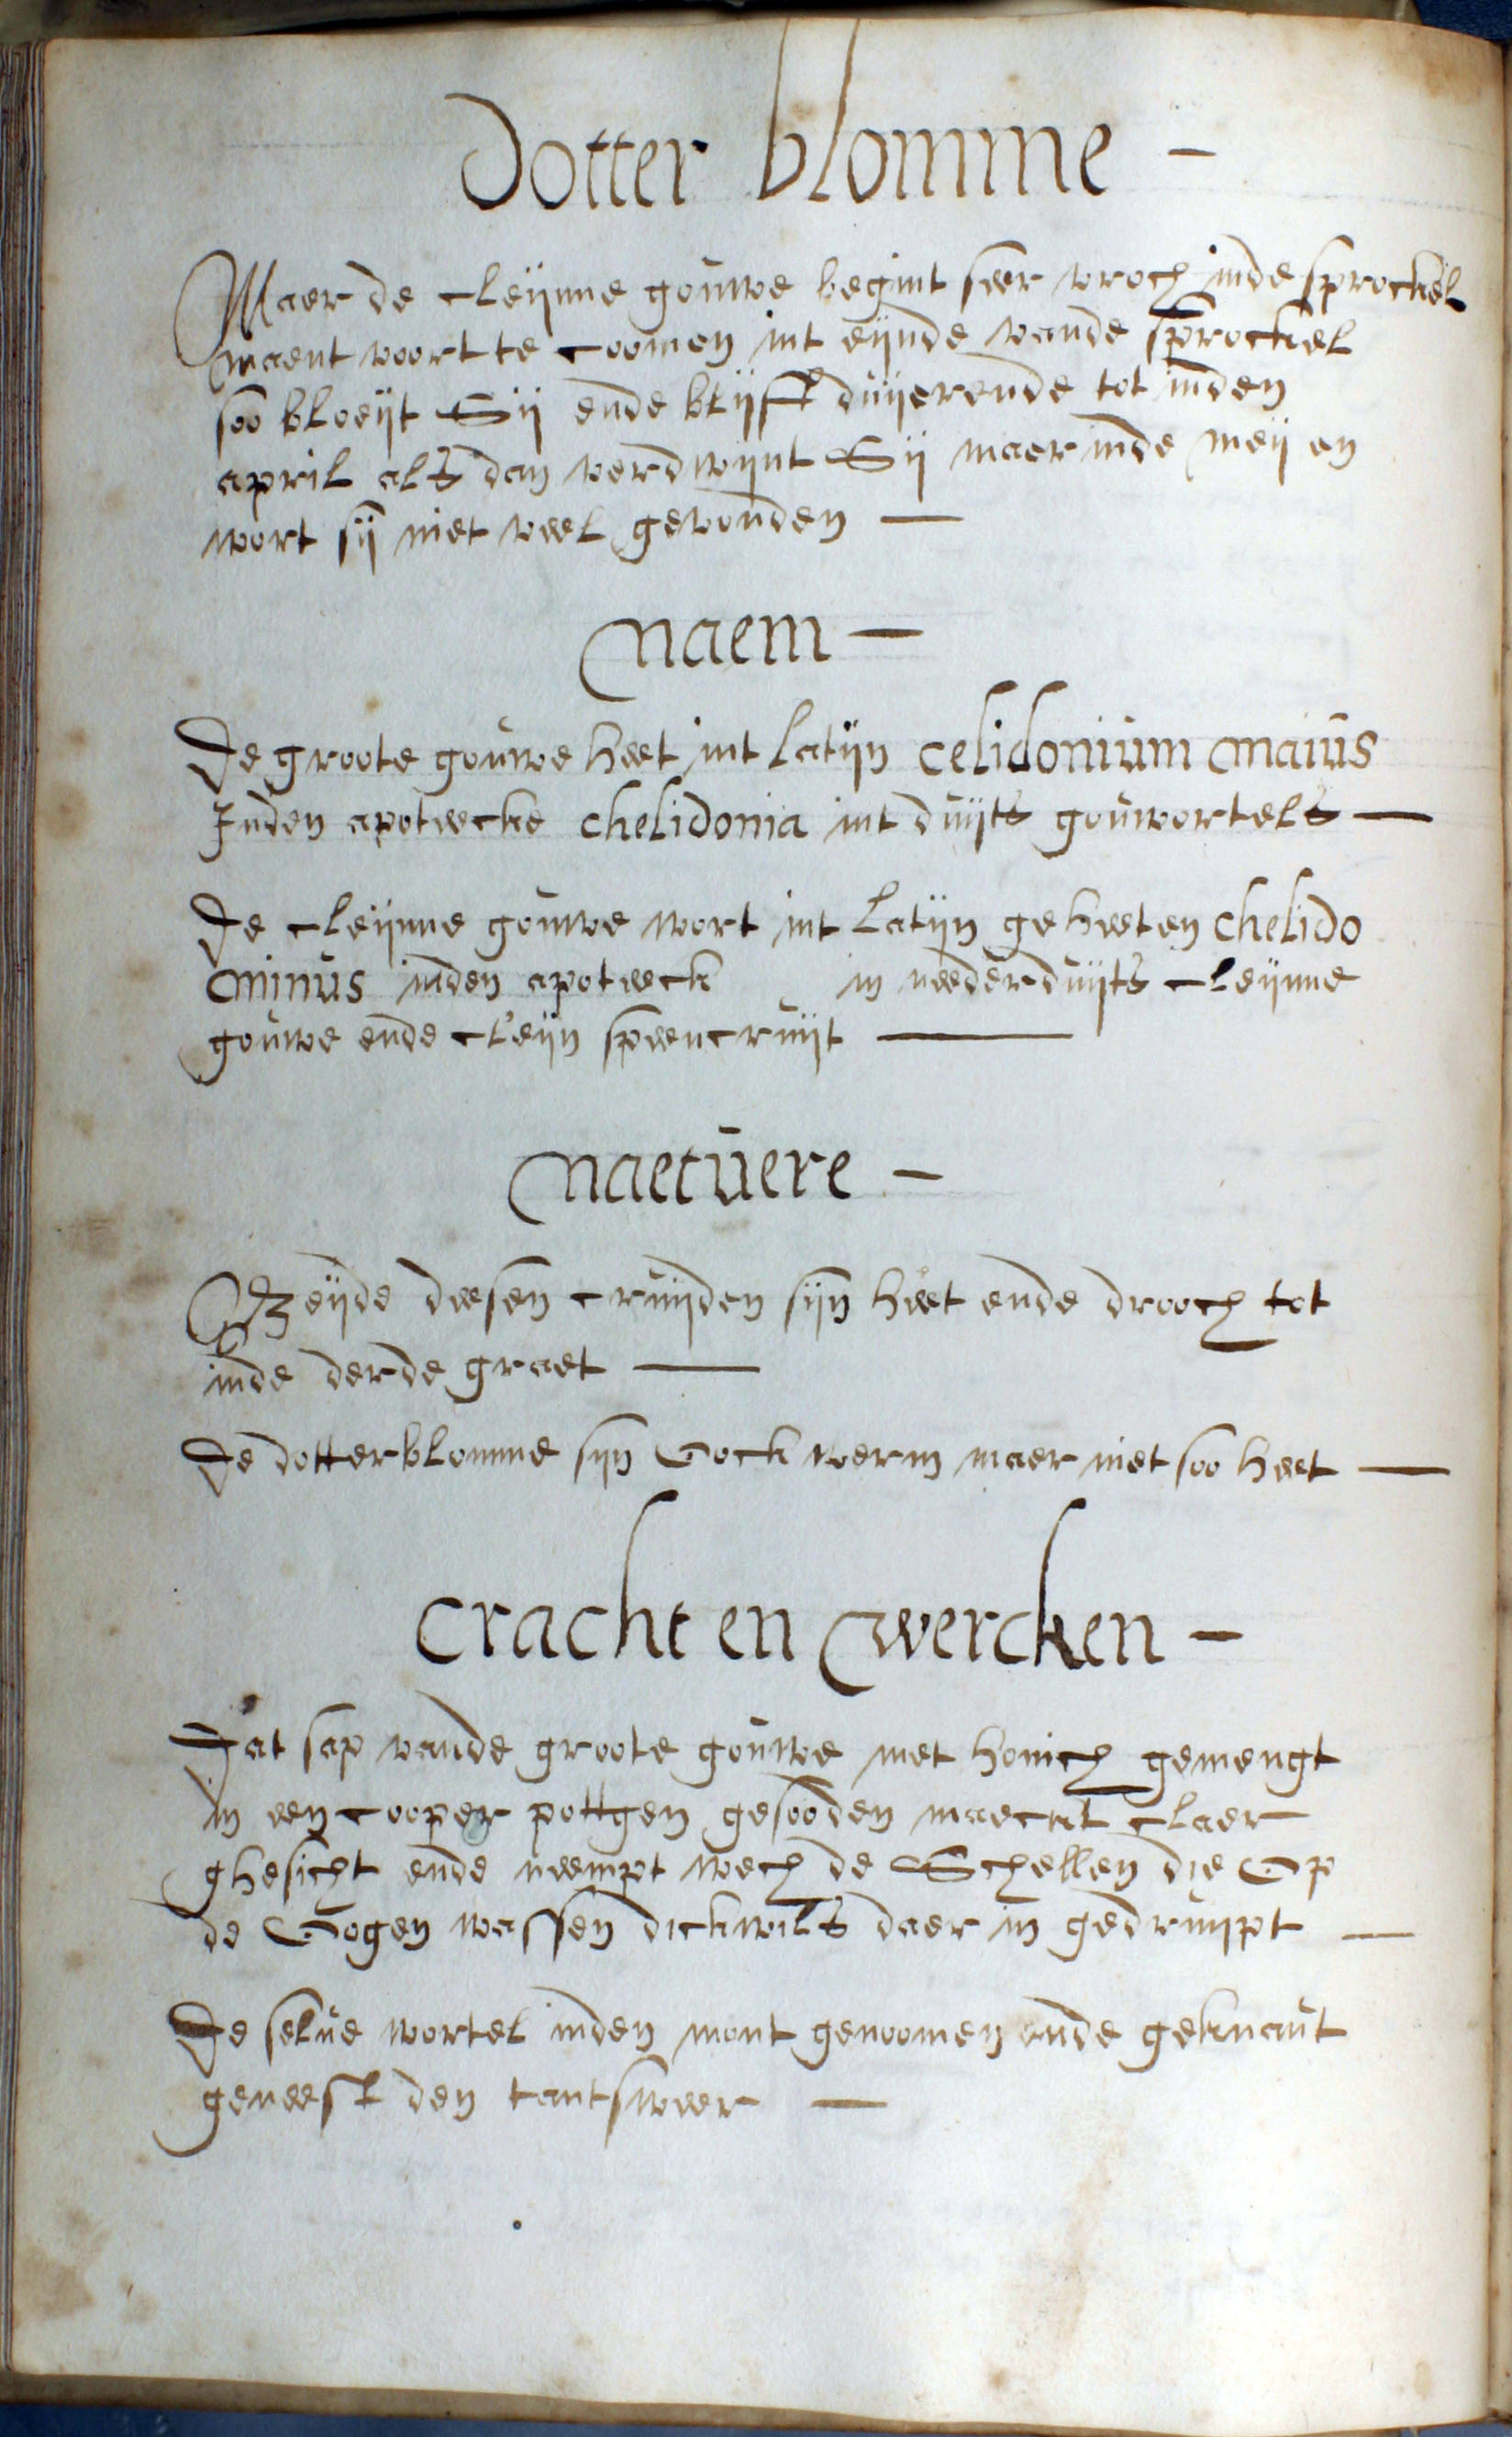 Dotter blomme -
Maer de cleijnne gouwe begint seer vroch inde sprockel
maent voort te coomen int eijnde vande sprockel
soo bloeijt Sij ende blijfft duijerende tot inden
april als dan verdwijnt Sij maer inde meij en
wort sij niet veel gevonden —
Naem —
De groote gouwe heet int Latijn celidonium maius
Inden apoteecke chelidonia int duijts gouwortels —
De cleijnne gouwe wort int Latijn geheeten chelido
minus inden apoteeck in neederduijts cleijnne
gouwe ende cleijn speencruijt —
Naetuere —
Beijde deesen cruijden sijn heet ende drooch tot
inde derde graet —
De dotterblomme sijn Oock werm maer niet soo heet —
Cracht en wercken -
Dat sap vande groote gouwe met honich gemengt
in een cooper pottgen gesooden maeckt claer
ghesicht ende neempt wech de Schellen die Op
de Oogen wassen dickwils daer in gedruijpt —
De selve wortel inden mont genoomen ende geknaut
geneest den tantsweer —